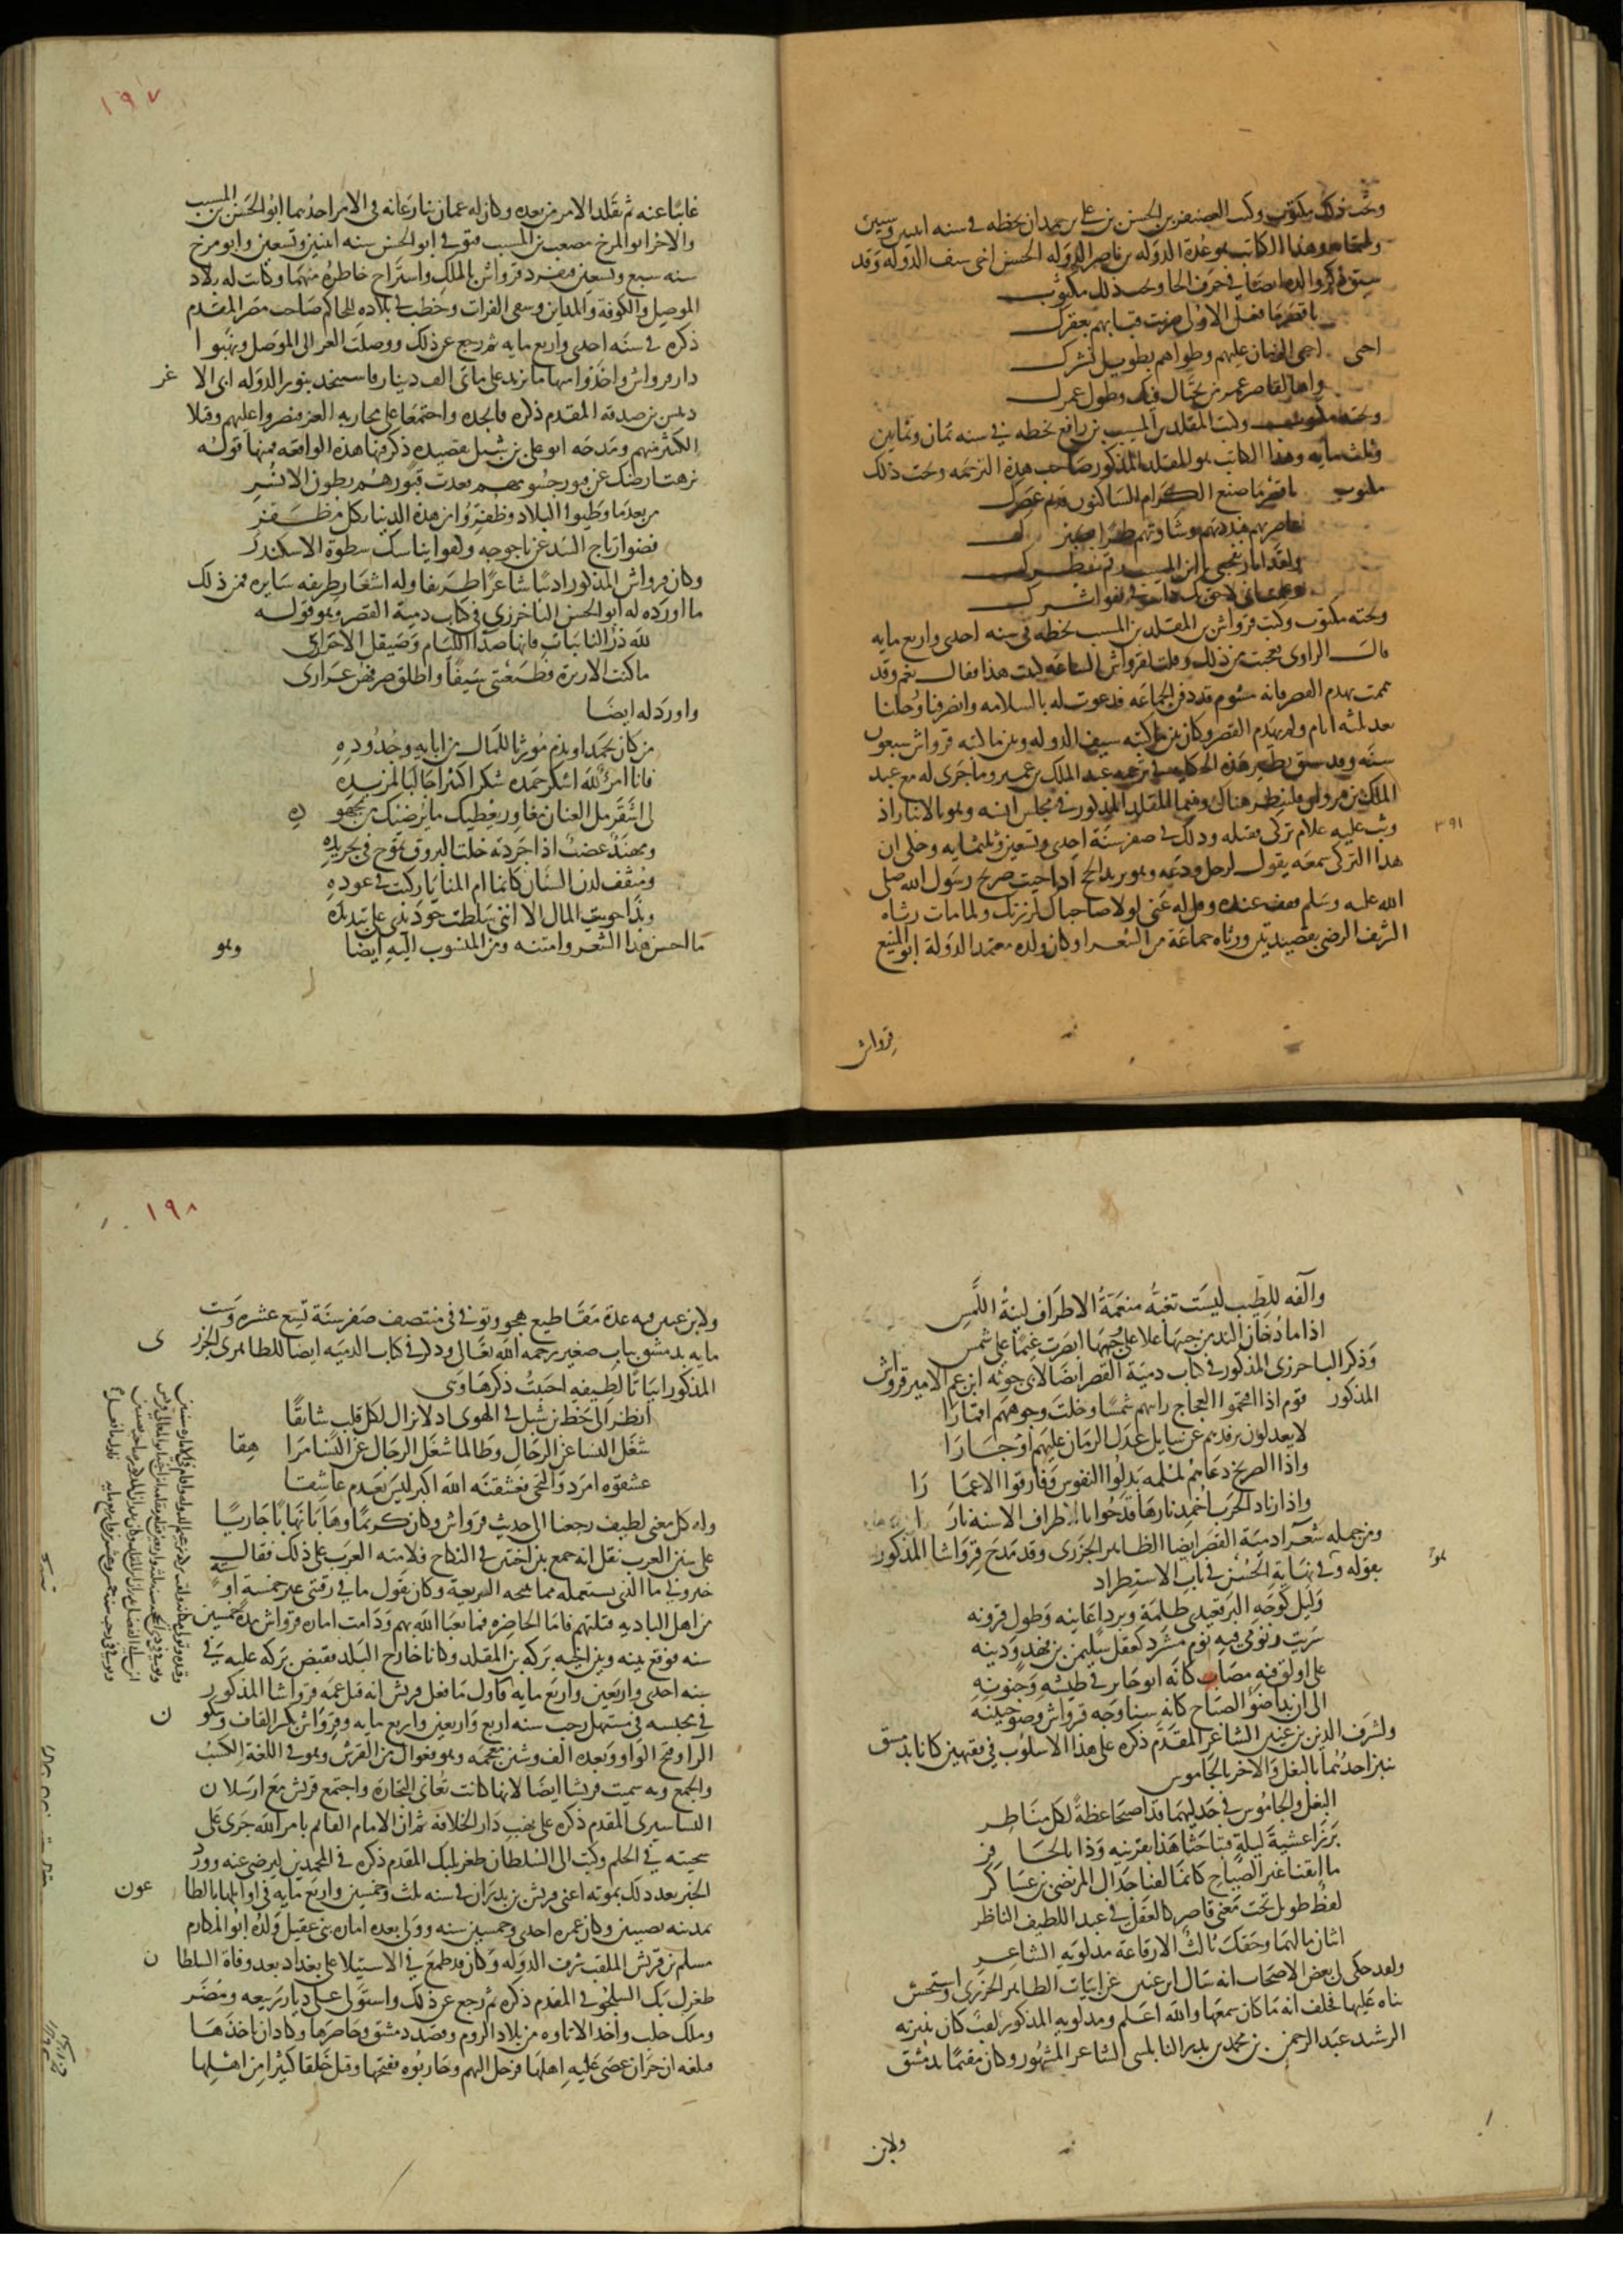 وتحت ذلك مكتوب وكتب الغضنفر بن الحسن بن علي بن حمدان بخطه في سنه اثنين وستين
وثلثمايه وهذا الكاتب هو عدة الدوله بن ناصر الدوله الحسن اخي سيف الدوله وقد
سبق ذكر والده ايضا في حرف الحا وتحت ذلك مكتوب
يا قصر ما فعل الاولى ضربت قبابهم بعقرك
اخنى الزمان عليهم وطواهم بطويل نشرك
واها لقاصر عمر من يختال فيك وطول عمرك
وتحته مكتوب وكتب المقلد بن المسيب بن رافع بخطه في سنه ثمان وثمانين
وثلث مايه وهذا الكاتب هو المقلد المذكور صاحب هذه الترجمه وتحت ذلك
مكتوب يا قصر ما صنع الكرام الساكنون قديم عصرك
عاصرتهم فبددتهم وشاوتهم طرا بصبرك
ولقد اثار تفجعي يا ابن المسيب رقم سطرك
وعلمت اني لاحق بك دايب في قفو اثرك
وتحته مكتوب وكتب قرواش بن المقلد بن المسيب بخطه في سنه احدى واربع مايه
قال الراوي فعجبت من ذلك وقلت لقرواش الساعه كتبت هذا فقال نعم وقد
هممت بهدم القصر فانه مشوم قد دفن الجماعه فدعوت له بالسلامه وانصرفنا ورحلنا
بعد ثلثه ايام ولم يهدم القصر وكان بين ما كتبه سيف الدوله وبين ما كتبه قرواش سبعون
سنه وقد سبق نظير هذه الحكايه في ترجمه عبد الملك بن عمير وما جرى له مع عبد
الملك بن مروان فلينظر هناك وبينما المقلد المذكور في مجلس انسه وهو بالانبار اذ
وثب عليه غلام تركي فقتله وذلك في صفر سنة احدى وتسعين وثلثمايه وحكي ان
٣٩١
هذا التركي سمعه يقول لرجل ودعه وهو يريد الحج اذا جيت ضريح رسول الله صلى
الله عليه وسلم فقف عنده وقل له عني لولا صاحباك لزرتك ولما مات رثاه
الشريف الرضي بقصيدتين ورثاه جماعة من الشعرا وكان ولده معتمد الدولة ابو المنيع
قرواش
١٩٧
غايبا عنه ثم تقلد الامر من بعده وكان له عمان ينازعانه في الامر احدهما ابو الحسن بن المسيب
والاخر ابو المرخ مصعب بن المسيب فتوفي ابو الحسن سنه اثنين وتسعين وابو مرخ
سنه سبع وتسعين فتفرد قرواش بالملك واستراح خاطره منهما وكانت له بلاد
الموصل والكوفة والمداين وسقي الفرات وخطب في بلاده للحاكم صاحب مصر المقدم
ذكره في سنه احدى واربع مايه ثم رجع عن ذلك ووصلت الغز الى الموصل ونهبوا
دار قرواش واخذوا منها ما يزيد على مايتي الف دينار فاستنجد بنور الدوله ابي الاغر
دبيس بن صدقه المقدم ذكره فانجده واجتمعا على محاربه الغز فنصروا عليهم وقتلا
الكثير منهم ومدحه ابو علي بن شبل بقصيده ذكر فيها هذه الواقعه فمنها قوله
نزهت ارضك عن قبور جسومهم فغدت قبورهم بطون الانسر
من بعد ما وطيوا البلاد وظفروا من هذه الدنيا بكل مظفر
فضوا رتاج السد عن ياجوجه ولقوا ببأسك سطوة الاسكندر
وكان قرواش المذكور اديبا شاعرا ظريفا وله اشعار ظريفه سايره فمن ذلك
ما اورده له ابو الحسن الباخرزي في كتاب دمية القصر وهو قوله
لله در النايبات فانها صدا الليام وصيقل الاحرار
ما كنت الا زبرة فطبعنني سيفا واطلق صرفهن غراري
واورد له ايضا
من كان يحمد او يذم مورثا للمال من ابايه وجدوده
فانا امرؤ لله اشكر حمده شكرا كثيرا جالبا لمزيده
لي اشقر مل العنان مغاور يعطيك ما يرضيك من مجهوده
ومهند عضب اذا جردته خلت البروق تموج في تجريده
ومثقف لدن السنان كانما ام المنايا ركبت في عوده
وبذا حويت المال الا انني سلطت جود يدي على تبديده
ما احسن هذا الشعر وامتنه ومن المنسوب اليه ايضا وهو
والفه للطيب ليست تغبه منعمة الاطراف لينة اللمس
اذا ما دخان الند من جيبها علا على وجهها ابصرت غيما على شمس
وذكر الباخرزي المذكور في كتاب دمية القصر ايضا لابي جوثه ابن عم الامير قرواش
المذكور قوم اذا اقتحموا العجاج رايتهم شمسا وخلت وجوههم اقمارا
لا يعدلون برفدهم عن سايل عدل الزمان عليهم او جارا
واذا الصريخ دعاهم لملمه بذلوا النفوس وفارقوا الاعمارا
واذا زناد الحرب اخمد نارها قدحوا باطراف الاسنه نارا
ومن جمله شعرا دمية القصر ايضا الظاهر الجزري وقد مدح قرواشا المذكور
بقوله وفي نهاية الحسن في باب الاستطراد
وليل كوجه البرقعيدي ظلمة وبرد اغانيه وطول قرونه
سريت ونومي فيه نوم مشرد كعقل سليمن بن فهد ودينه
على اولق فيه مضاب كانه ابو جابر في طيشه وجنونه
الى ان بدا ضوء الصباح كانه سنا وجه قرواش وضو جبينه
ولشرف الدين بن عنين الشاعر المقدم ذكره على هذا الاسلوب في فقيهين كانا بدمشق
ينبز احدهما بالبغل والاخر بالجاموس
البغل والجاموس في جدليهما قد اصبحا عظة لكل مناظر
برزا عشية ليلة فتباحثا هذا بقرنيه وذا بالحافر
ما اتقنا غير الصياح كانما لقنا جدال المرتضى بن عساكر
لفظ طويل تحت معنى قاصر كالعقل في عبد اللطيف الناظر
اثنان مالهما وحقك ثالث الا رقاعة مدلويه الشاعر
ولقد حكى لي بعض الاصحاب انه سال ابن عنين عن ابيات الظاهر الجزري واستحسن
بناه عليها فحلف انه ما كان سمعها والله اعلم ومدلويه المذكور لقب كان ينبز به
الرشيد عبد الرحمن بن محمد بن بدر النابلسي الشاعر المشهور وكان مقيما بدمشق
ولابن
١٩٨
ولابن عنين فيه عدة مقاطيع هجو وتوفي في منتصف صفر سنة تسع عشره وست
مايه بدمشق بباب صغير رحمه الله تعالى وذكر في كتاب الدميه ايضا للظاهر الجزري
المذكور ابياتا لطيفه احببت ذكرها وهي
انظر الى حظ بن شبل في الهوى اذ لا يزال لكل قلب شايقا
شغل النسا عن الرجال وطالما شغل الرجال عن النسا مراهقا
عشقوه امرد والتحى فعشقنه الله اكبر ليس يعدم عاشقا
وله كل معنى لطيف رجعنا الى حديث قرواش وكان كريما وهابا نهابا جاريا
على سنن العرب نقل انه جمع بين اختين في النكاح فلامته العرب على ذلك فقال
خبروني ما الذي نستعمله مما تبيحه الشريعة وكان يقول ما في رقبتي غير خمسة او ستة
من اهل الباديه قتلتهم فاما الحاضره فما يعبا الله بهم ودامت اماره قرواش مدة خمسين
سنه فوقع بينه وبين اخيه بركه بن المقلد وكانا خارج البلد فقبض بركه عليه في
سنه احدى واربعين واربع مايه فاول ما فعل قريش انه قتل عمه قرواشا المذكور
في محبسه في مستهل رجب سنه اربع واربعين واربع مايه وقرواش بكسر القاف وسكون
الرا وفتح الواو وبعده الف وشين معجمه وهو فعوال من القرش وهو في اللغة الكسب
والجمع وبه سميت قريشا ايضا لانها كانت تعاني التجارة واجتمع قريش مع ارسلان
البساسيري المقدم ذكره على نهب دار الخلافة ثم ان الامام القايم بامر الله جرى على
سجيته في الحلم وكتب الى السلطان طغرلبك المقدم ذكره في المحمدين ليرضى عنه وورد
الخبر بعد ذلك بموته اعني قريش بن بدران في سنه ثلث وخمسين واربع مايه في اوايلها بالطاعون
بمدينه نصيبين وكان عمره احدى وخمسين سنه وولي بعده امارة بني عقيل ولده ابو المكارم
مسلم بن قريش الملقب شرف الدوله وكان قد طمع في الاستيلا على بغداد بعد وفاة السلطان
طغرل بك السلجوقي المقدم ذكره ثم رجع عن ذلك واستولى على ديار ربيعه ومضر
وملك حلب واخذ الاتاوه من بلاد الروم وقصد دمشق وحاصرها وكاد ان ياخذها
فبلغه ان حران عصى عليه اهلها فرحل اليهم وحاربوه ففتحها وقتل خلقا كثيرا من اهلها